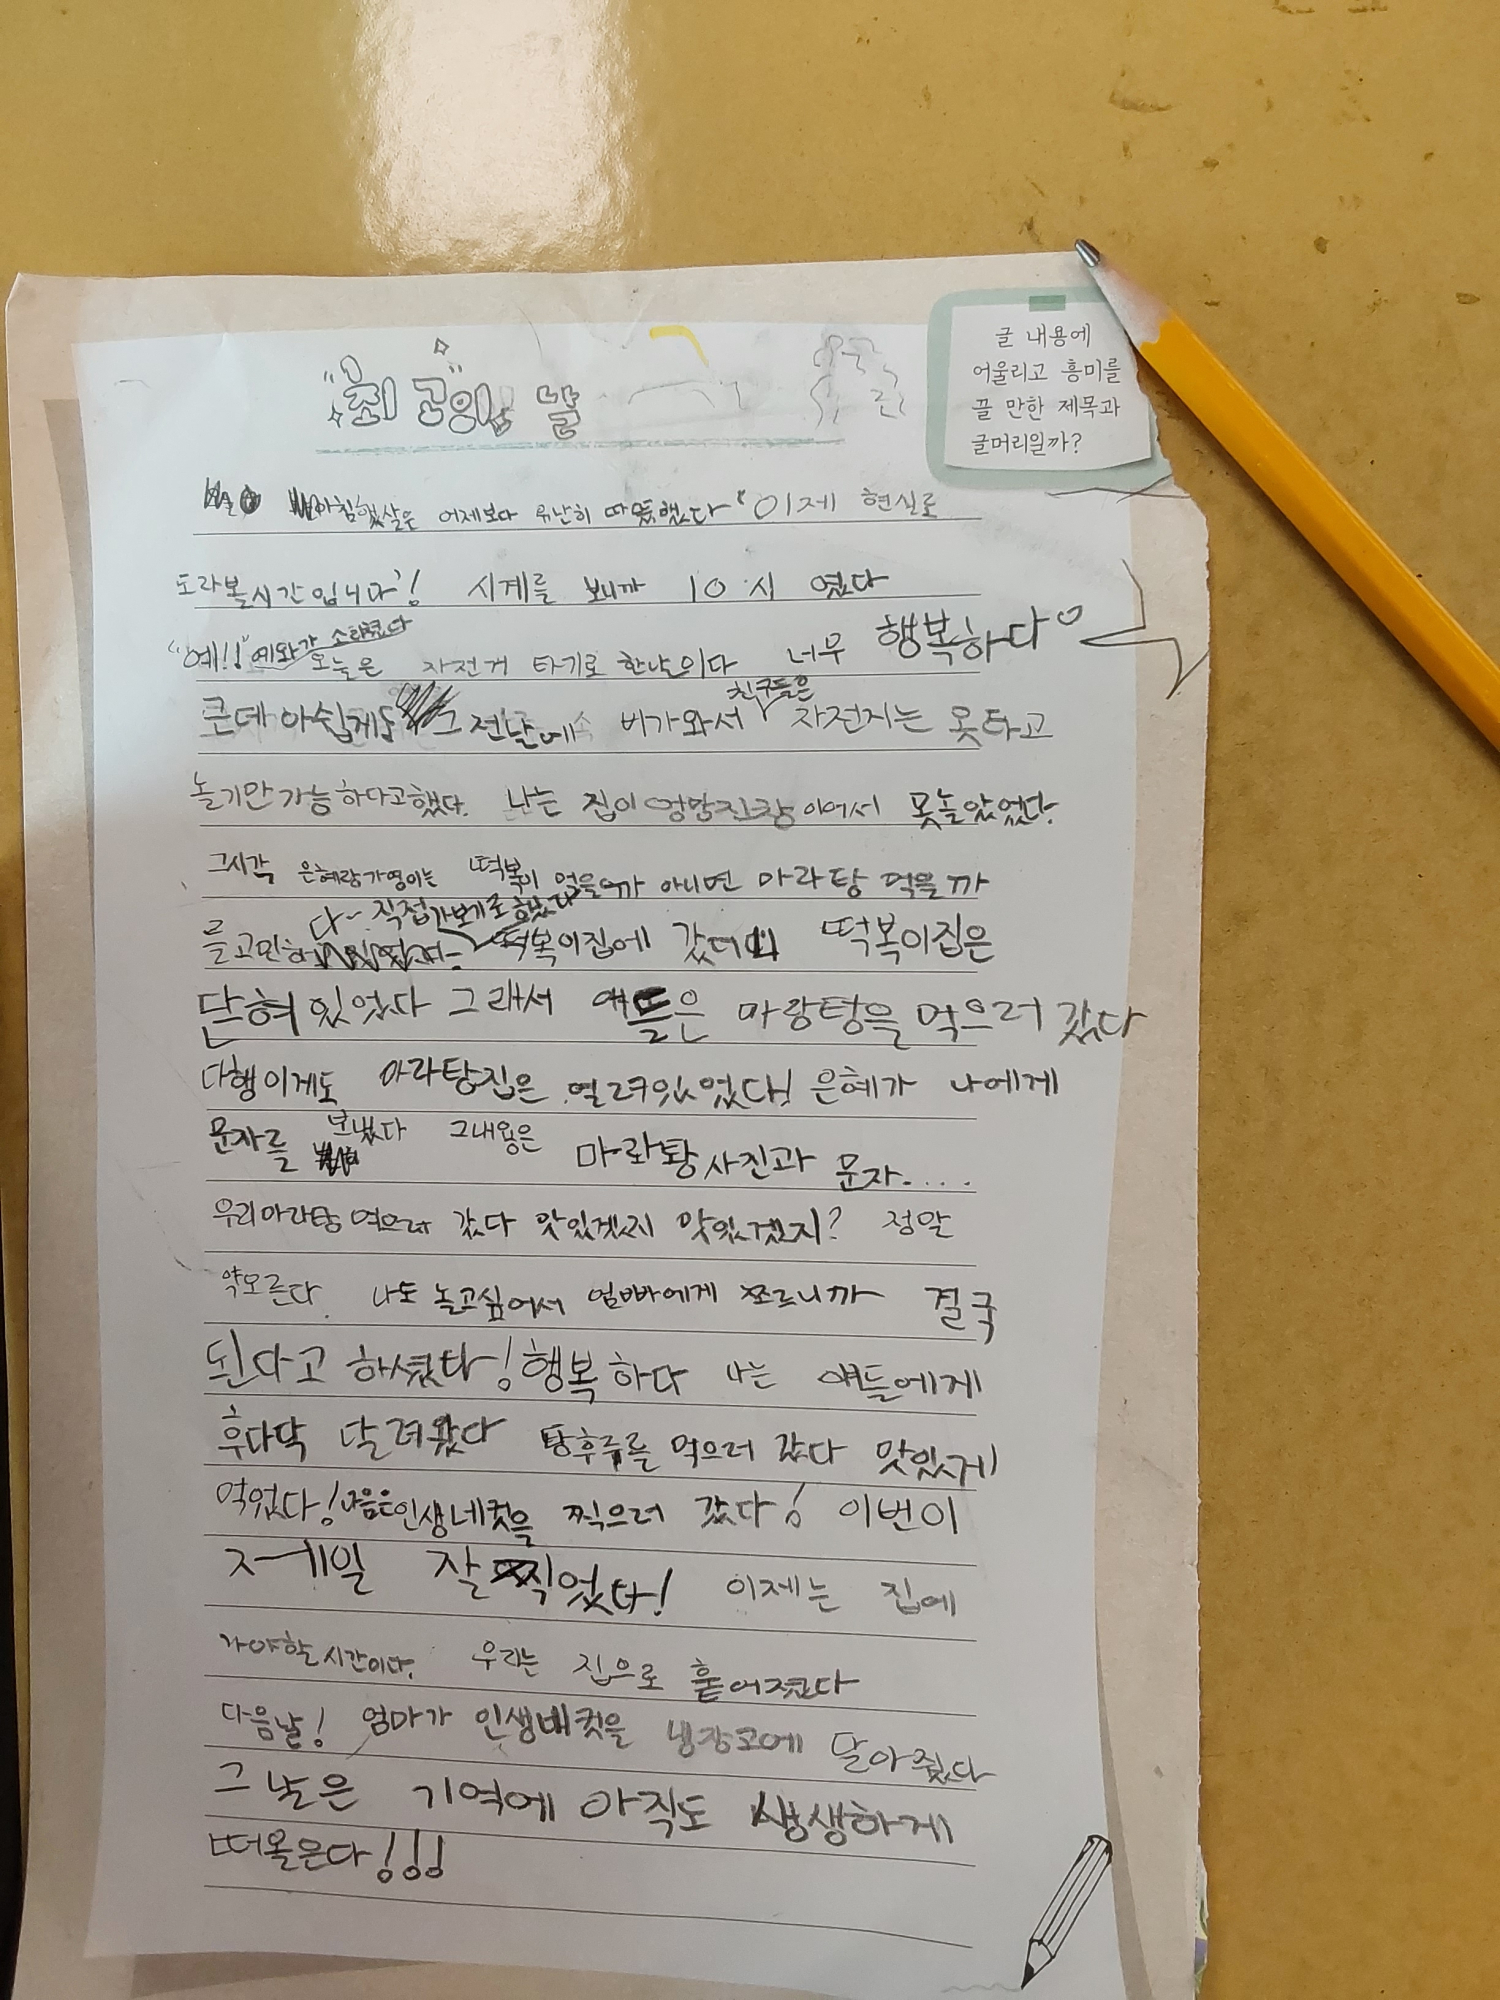 "최고인 날"
글 내용에
어울리고 흥미를
끌 만한 제목과
글머리일까?
아침햇살은 어제보다 유난히 따뜻했다 "이제 현실로
도라볼시간입니다"! 시계를 보니까 10시 였다
"예!!" 예와가 소리쳤다 오늘은 자전거 타기로 한날이다 너무 행복하다
큰데 아쉽게도 그 전날에 비가와서 친구들은 자전지는 못타고
놀기만가능하다고했다. 나는 집이 엉망진창 이어서 못놀았었다.
그시각 은혜랑가영이는 떡볶이 먹을까 아니면 마라탕 먹을까
를고민하 다~ 직접가보기로했다 떡복이집에 갔더니 떡복이집은
닫혀있었다 그래서 얘들은 마랑탕을 먹으러 갔다
다행이게도 마라탕집은 열려있었다! 은혜가 나에게
문자를 보냈다 그내용은 마라탕사진과 문자....
우리마라탕 먹으러 갔다 맛있겠지 맛있겠지? 정말
약오른다. 나도 놀고싶어서 엄빠에게 쪼르니까 결국
된다고 하셨다! 행복하다 나는 얘들에게
후다닥 달려왔다 탕후루를 먹으러 갔다 맛있게
먹었다! 다음은인생네컷을 찍으러 갔다! 이번이
제일 잘 찍었다! 이제는 집에
가야할시간이다. 우리는 집으로 흩어졌다
다음날! 엄마가 인생네컷을 냉장고에 달아줬다
그 날은 기억에 아직도 생생하게
떠올은다!!!